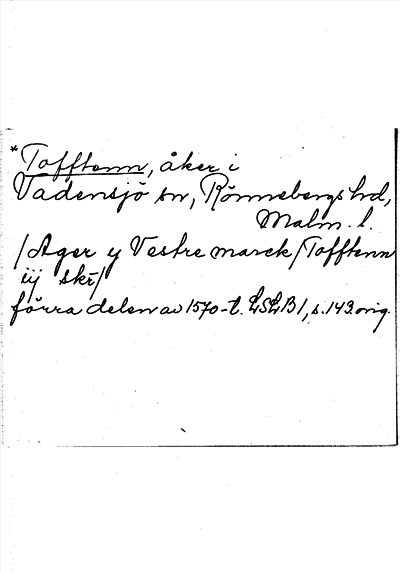 *Tofftenn, åker i
Vadensjö sn, Rönnebergs hd,
Malm. l.
/Ager y Vestre marck/Tofftenn
iij skr/
förra delen av 1570-t. LSLB1, s.143 orig.